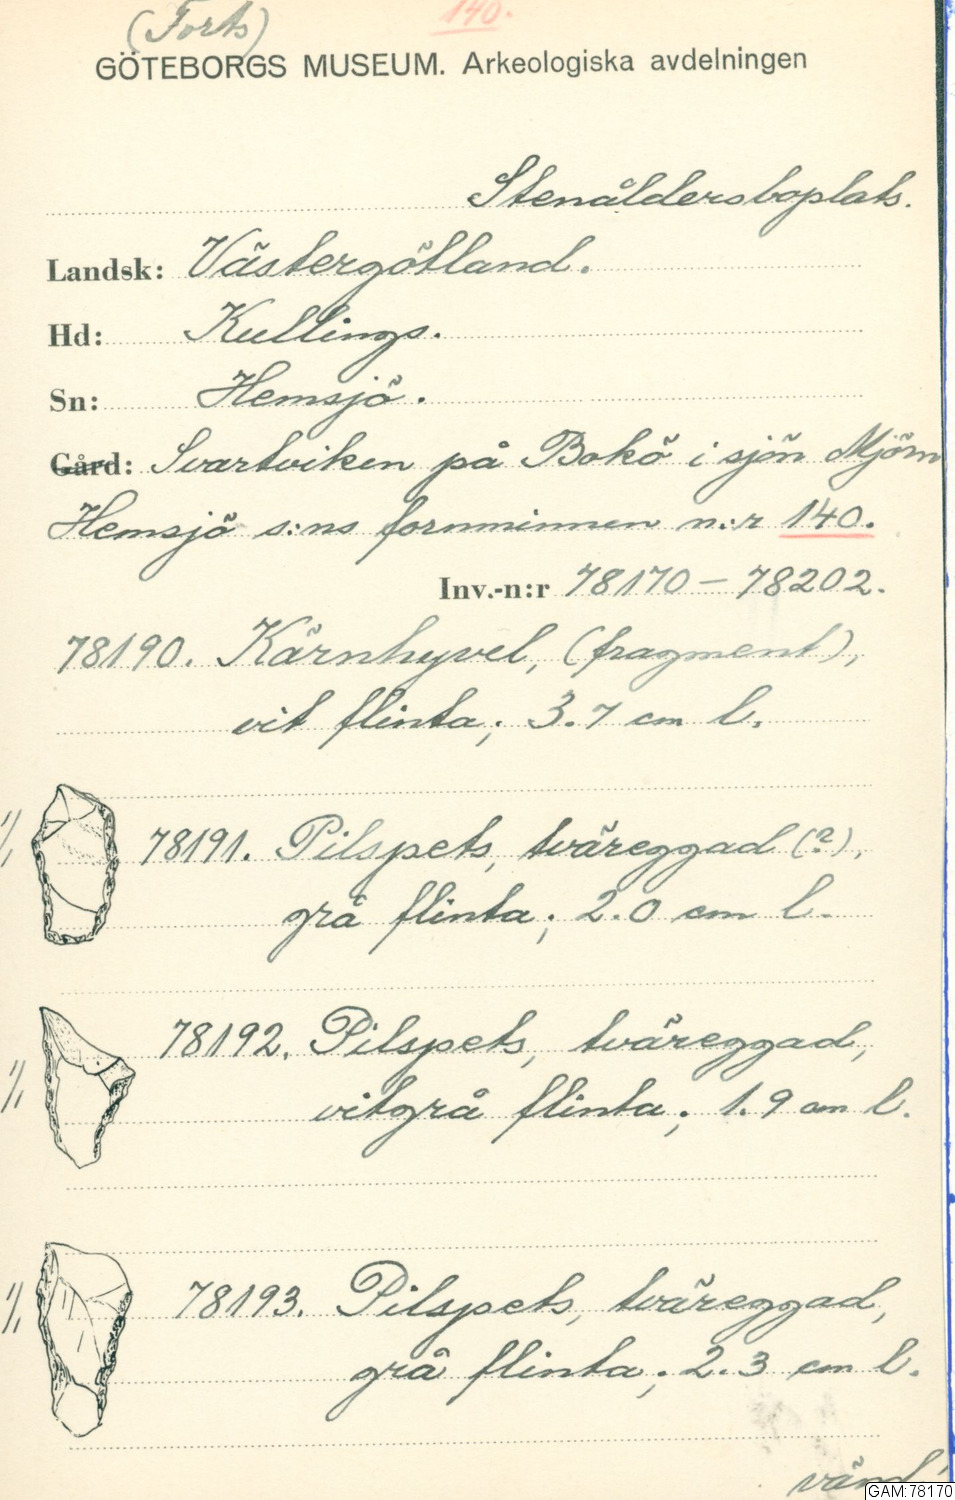 (Forts)
140.
GÖTEBORGS MUSEUM. Arkeologiska avdelningen
Stenåldersboplats.
Landsk: Västergötland.
Hd: Kullings.
Sn: Hemsjö.
Gård: Svartviken på Bokö i sjön Mjörn
Hemsjö s:ns fornminnen n:r 140.
Inv.-n:r 78170 – 78202.
78190. Kärnhyvel, (fragment),
vit flinta; 3.7 cm l.
1/1 78191. Pilspets, tväreggad (?),
grå flinta; 2.0 cm l.
1/1 78192. Pilspets, tväreggad,
vitgrå flinta; 1.9 cm l.
1/1 78193. Pilspets, tväreggad,
grå flinta; 2.3 cm l.
vänd!
GAM:78170